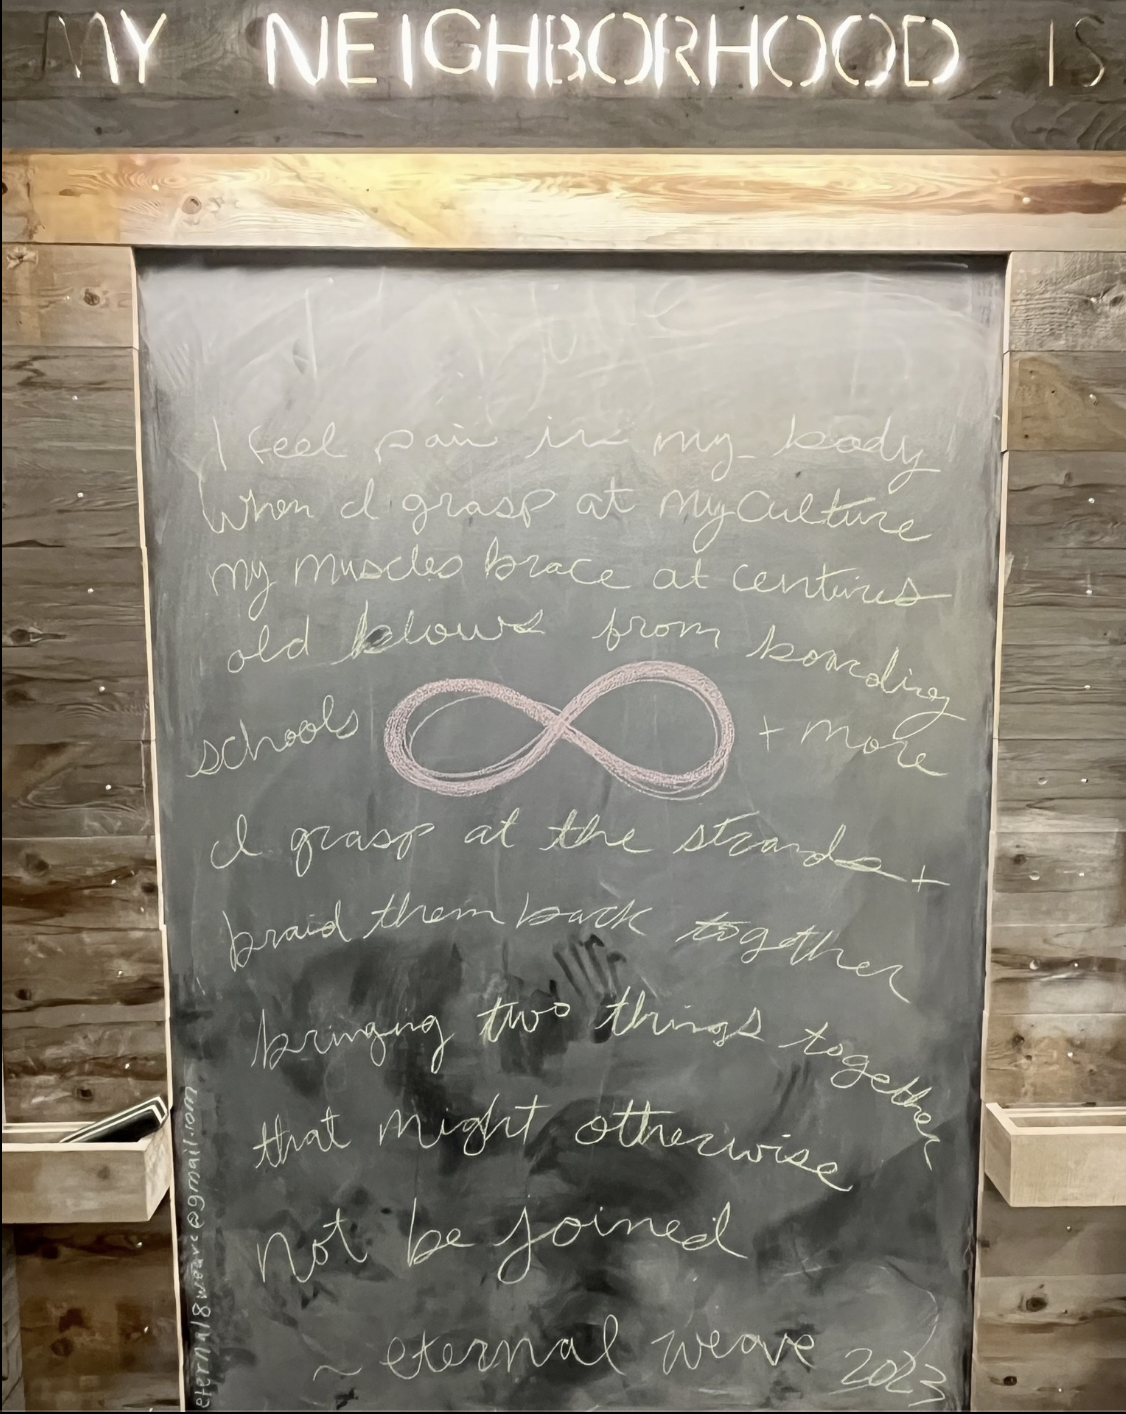 MY NEIGHBORHOOD IS
I feel pain in my body
When I grasp at my Culture
my muscles brace at centuries
old blows from boarding
schools + more
I grasp at the strands +
braid them back together
bringing two things together
that might otherwise
not be joined
~ eternal weave 2023
eternal8weave@gmail.com